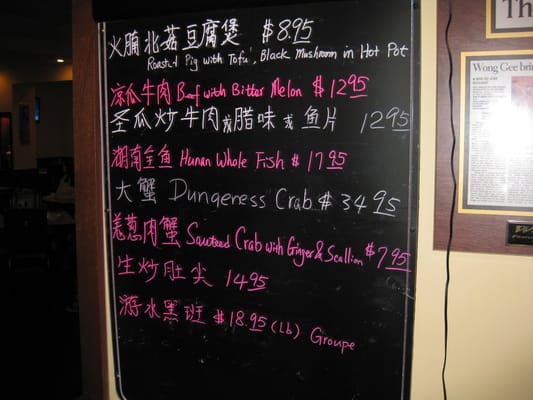 火腩北菇豆腐煲 $8.95
Roasted Pig with Tofu, Black Mushroom in Hot Pot
凉瓜牛肉 Beef with Bitter Melon $12.95
圣瓜炒牛肉或腊味或鱼片 12.95
湖南全鱼 Hunan Whole Fish $17.95
大蟹 Dungeness Crab $34.95
羌葱肉蟹 Sauteed Crab with Ginger & Scallion $7.95
生炒肚尖 14.95
游水黑班 $18.95 (Lb) Groupe
The
Wong Gee brin